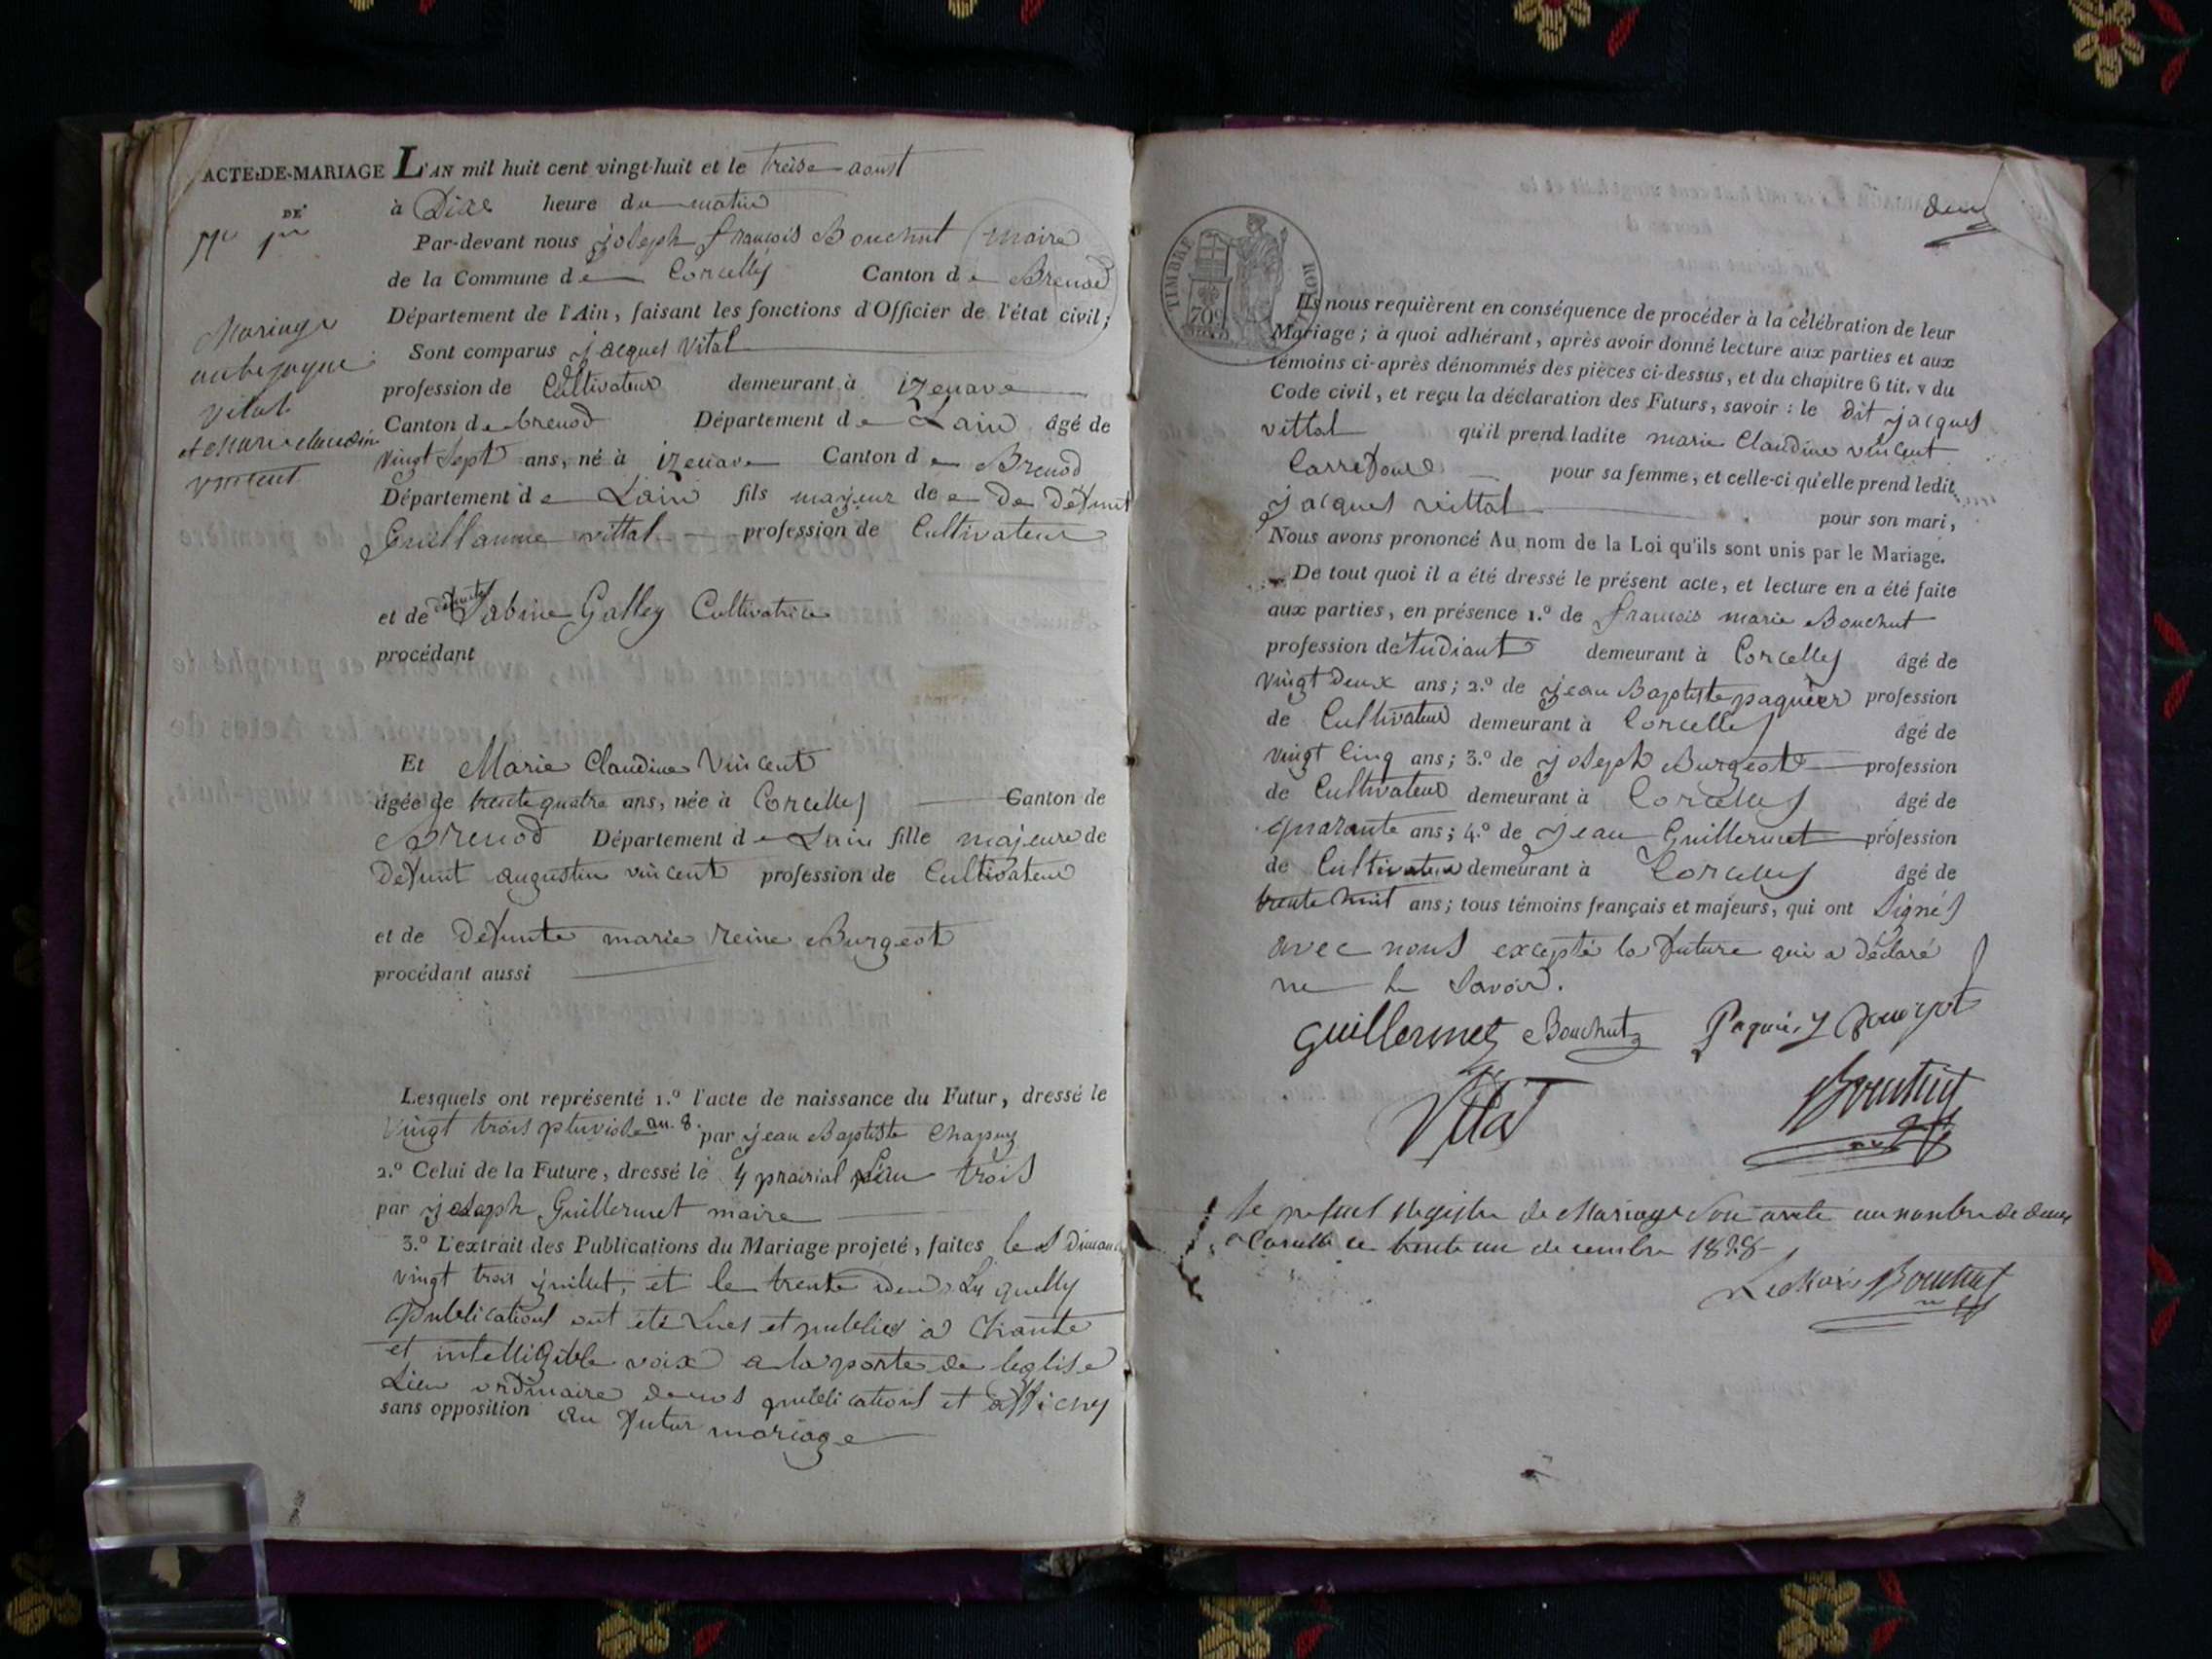 ACTE-DE-MARIAGE L'AN mil huit cent vingt-huit et le treise aoust
DE
à Dixe heure du matin
Par-devant nous joseph francois Bouchut maire
de la Commune de Corcelles Canton de Brenod
Département de l'Ain, faisant les fonctions d'Officier de l'état civil;
Mariage
Sont comparus jacques Vital
profession de Cultivateur demeurant à izenave
vital
Canton de brenod Département de Lain âgé de
et Marie claudine
vingt Sept ans, né à izenave Canton de Brenod
vincent
Département de Lain fils majeur de De Defunt
Guillaume vittal profession de Cultivateur
et de defunte Sabine Galley Cultivatrice
procédant
Et Marie Claudine Vincent
âgée de trente quatre ans, née à Corcelles Canton de
Brenod Département de Lain fille majeure de
Defunt augustin vincent profession de Cultivateur
et de Defunte marie reine Burgeot
procédant aussi
Lesquels ont représenté 1.º l'acte de naissance du Futur, dressé le
Vingt trois pluviose an 8. par jean Baptiste Chapuy
2.º Celui de la Future, dressé le 4 prairial Lan trois
par joseph Guillermet maire
3.º L'extrait des Publications du Mariage projeté, faites les Dimanche
vingt trois juillet, et le trente
publications ont été Lues et publies a
et intelligible voix a la porte de leglise
Lieu ordinaire de nos publications et affiches
sans opposition au futur mariage
deux
TIMBRE ROYAL
70
Ils nous requièrent en conséquence de procéder à la célébration de leur
Mariage; à quoi adhérant, après avoir donné lecture aux parties et aux
témoins ci-après dénommés des pièces ci-dessus, et du chapitre 6 tit. v du
Code civil, et reçu la déclaration des Futurs, savoir: le dit jacques
vittal qu'il prend ladite marie Claudine vincent
pour sa femme, et celle-ci qu'elle prend ledit
jacques vittal pour son mari,
Nous avons prononcé Au nom de la Loi qu'ils sont unis par le Mariage.
De tout quoi il a été dressé le présent acte, et lecture en a été faite
aux parties, en présence 1.º de francois marie Bouchut
profession de tudiant demeurant à Corcelles âgé de
vingt Deux ans; 2.º de jean Baptiste paquier profession
de Cultivateur demeurant à Corcelles âgé de
vingt Cinq ans; 3.º de joseph Burgeot profession
de Cultivateur demeurant à Corcelles âgé de
quarante ans; 4.º de jean Guillermet profession
de Cultivateur demeurant à Corcelles âgé de
trente huit ans; tous témoins français et majeurs, qui ont Signés
avec nous excepté la future qui a déclaré
ne le Savoir.
guillermet Bouchut
Vital Bouchut
le present Registre de Mariage arrete au nombre de deux
a Corcelle ce trente un decembre 1828
Le Maire Bouchut